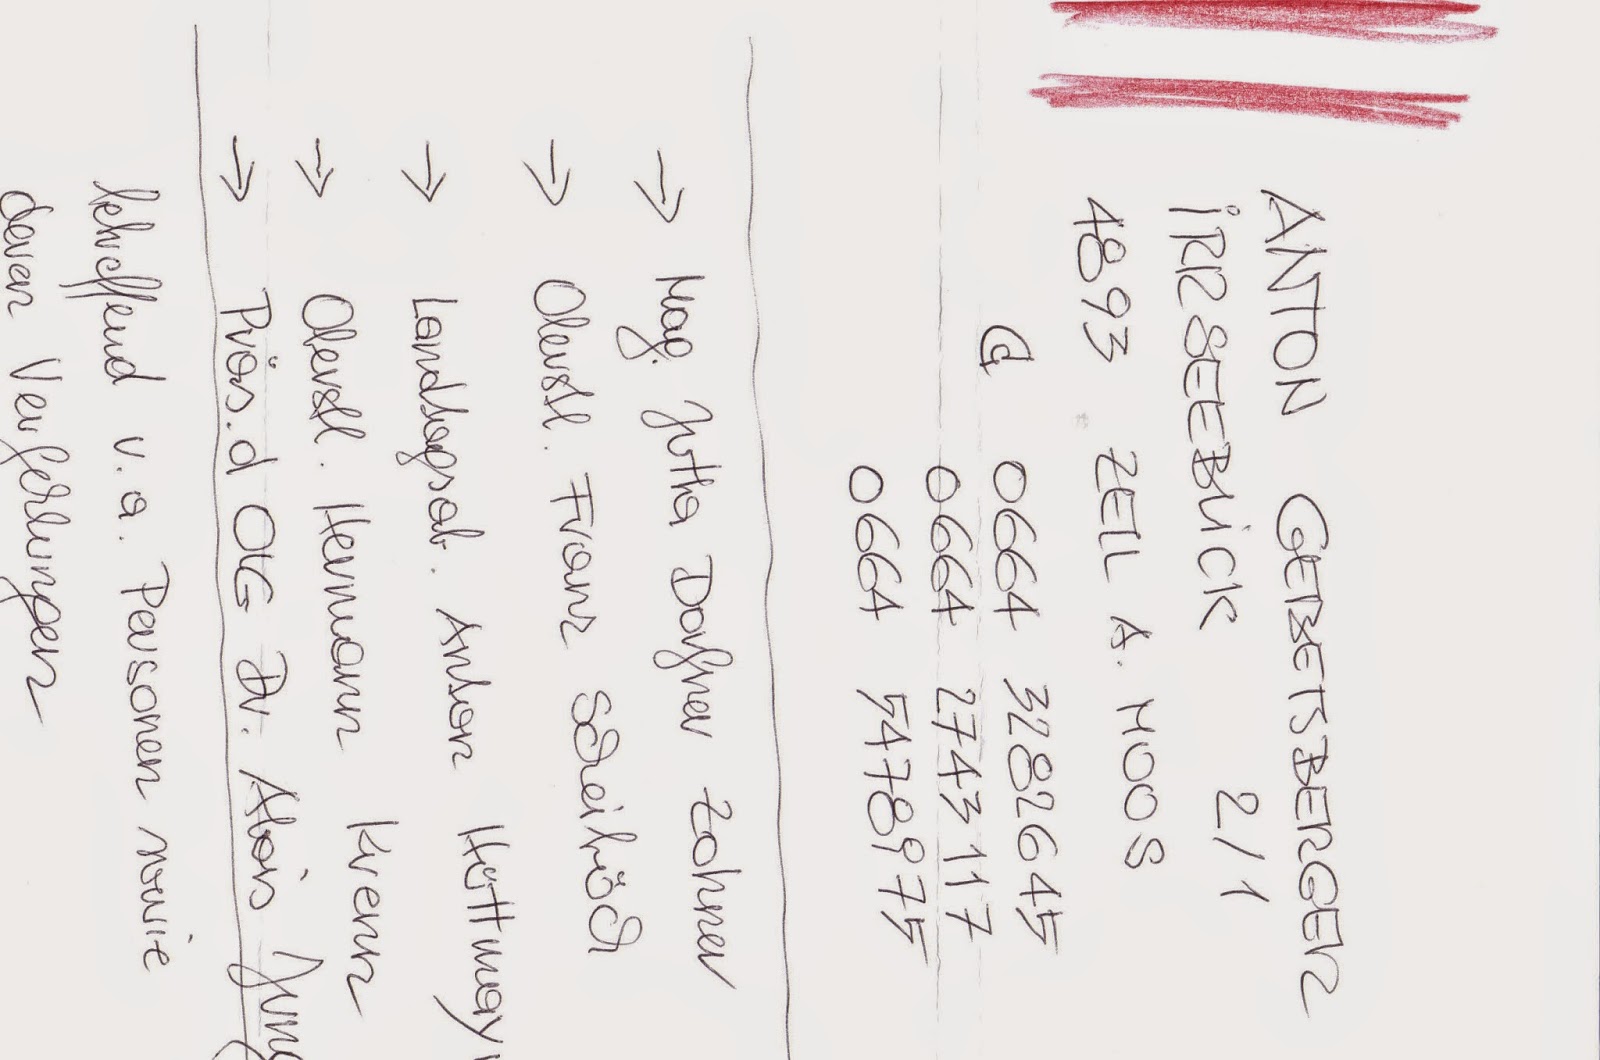 ANTON GEBETSBERGER
iRRSEEBLiCK 2/1
4893 ZELL A. MOOS
0664 3282645
0664 2743117
0664 5478975
→ Mag. Jutta Dorfner Zahner
→ Oberstl. Franz
→ Landtagsab. Anton Hüttmay
→ Oberstl. Hermann Krenn
→ Präs. d OLG Dr. Alois Jung
betreffend u. a. Personen sowie
deren Verfehlungen